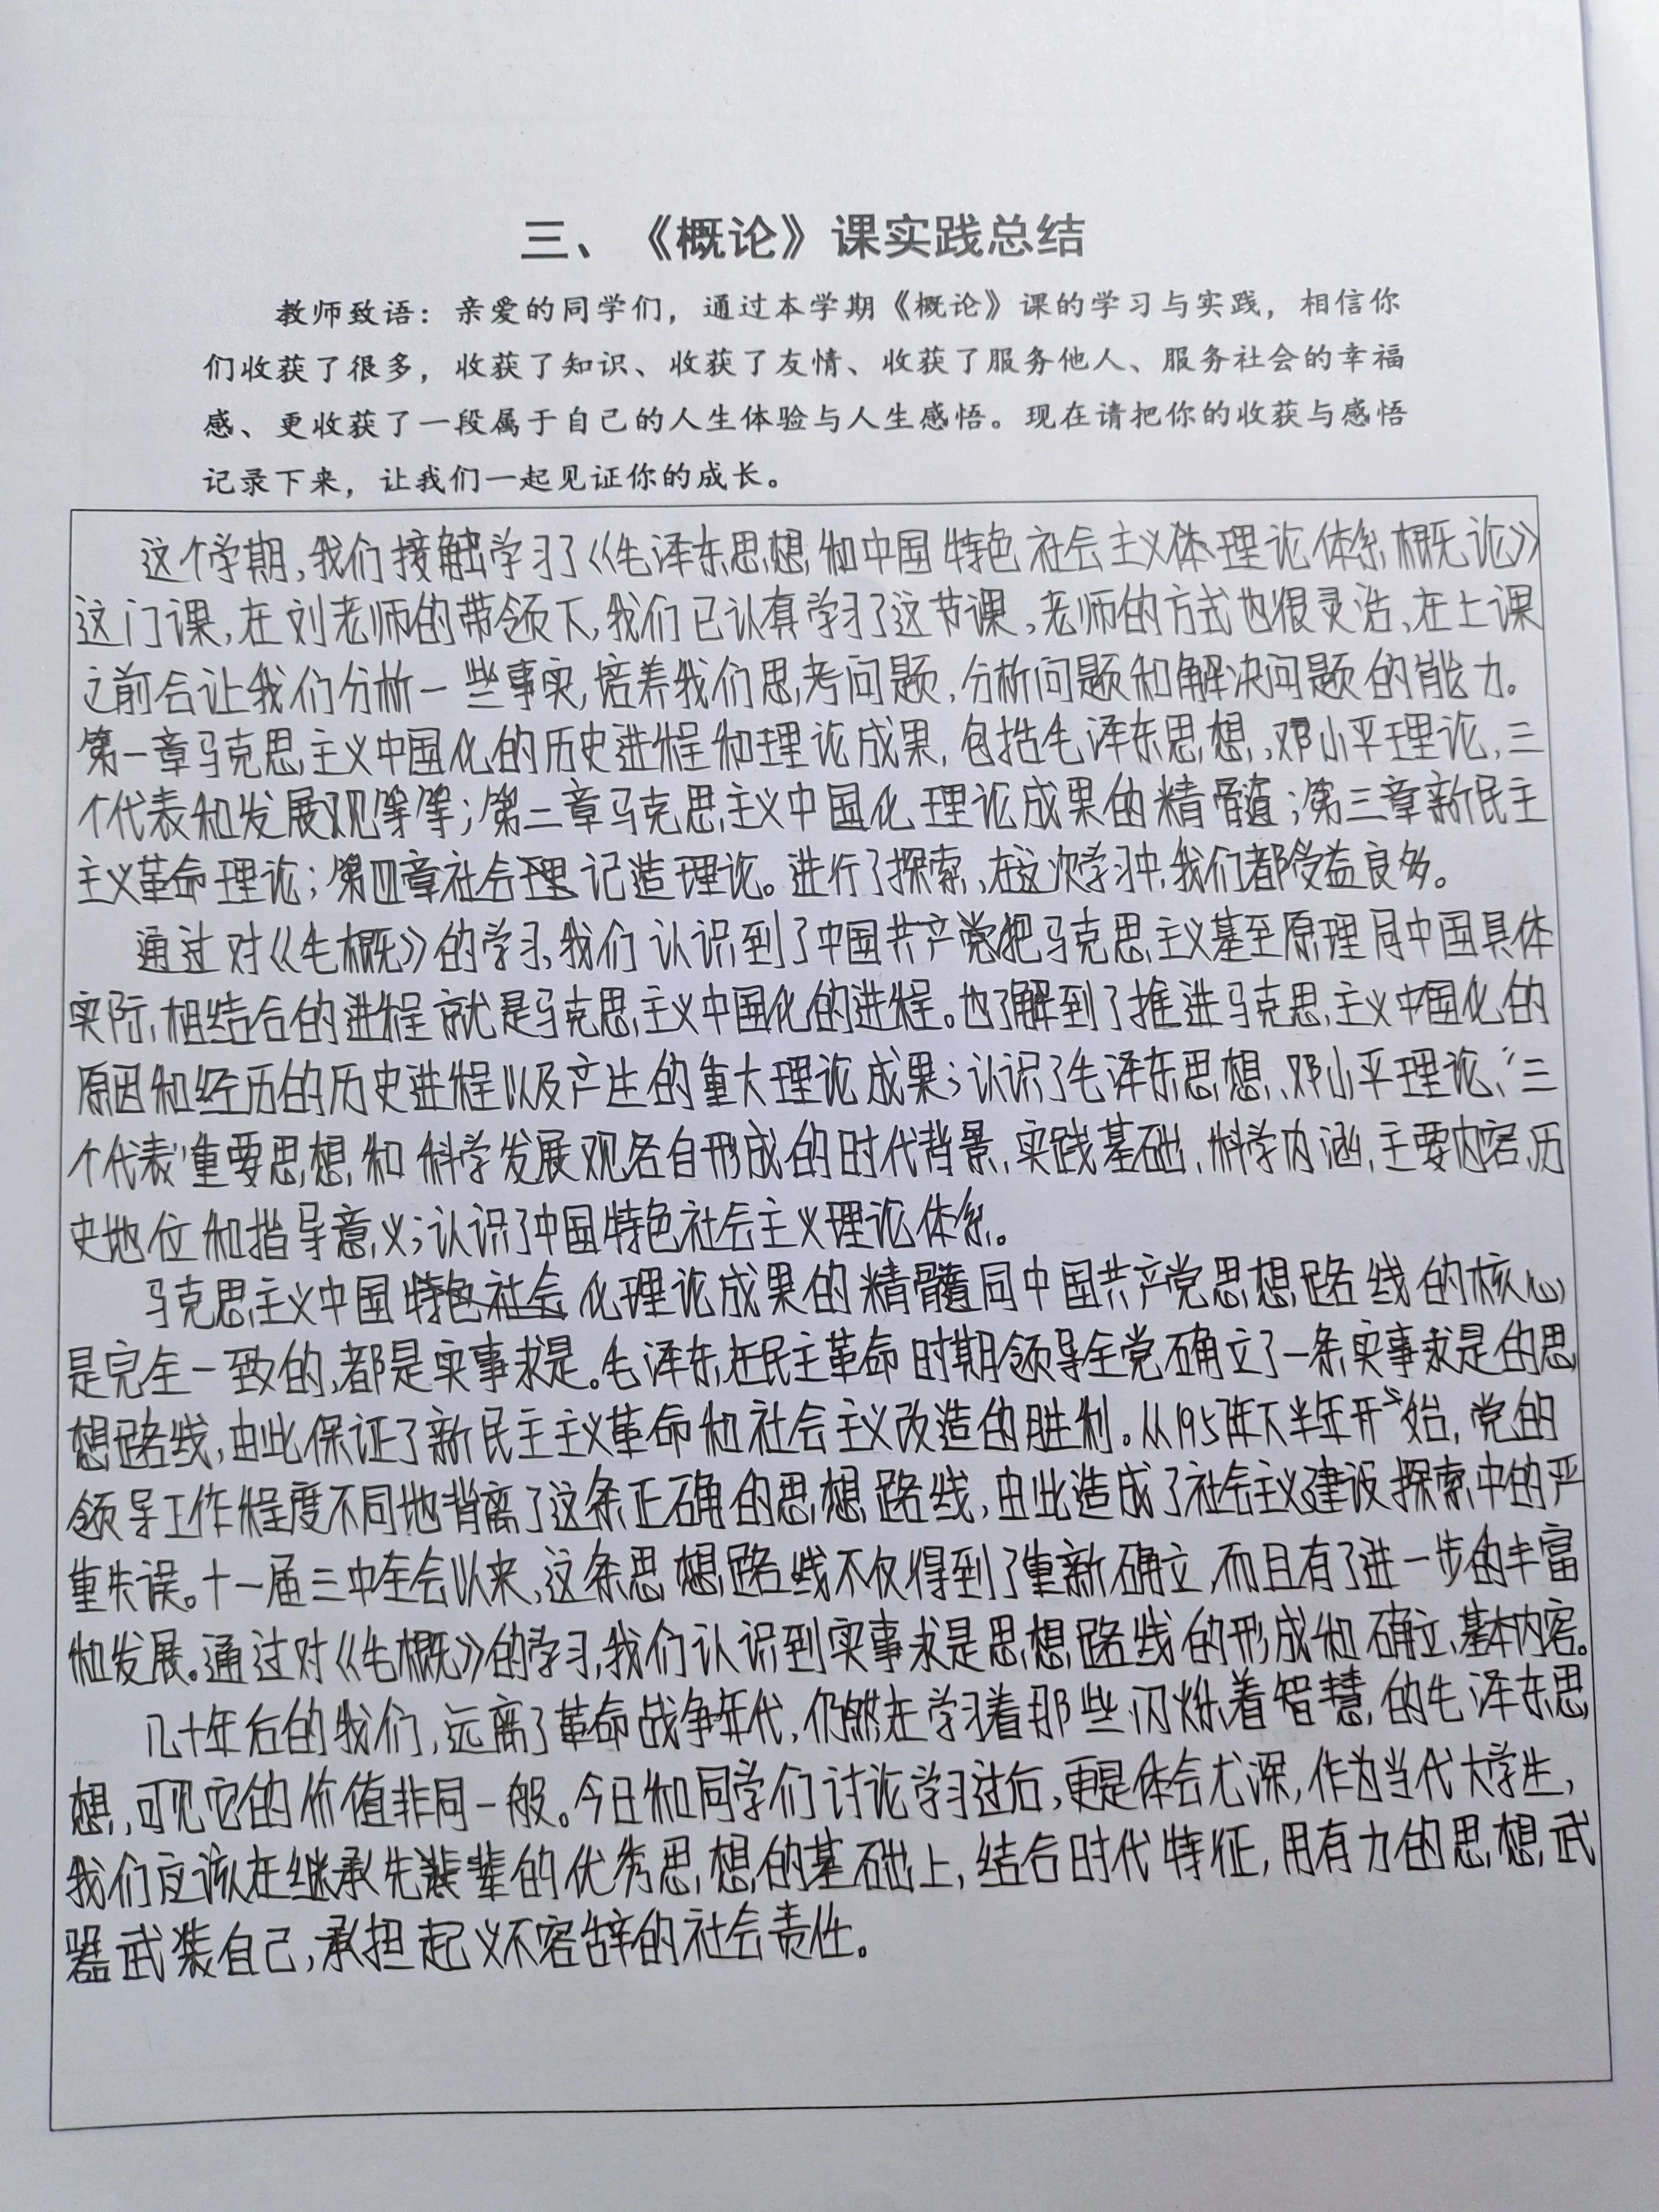 三、《概论》课实践总结
教师致语：亲爱的同学们，通过本学期《概论》课的学习与实践，相信你
们收获了很多，收获了知识、收获了友情、收获了服务他人、服务社会的幸福
感、更收获了一段属于自己的人生体验与人生感悟。现在请把你的收获与感悟
记录下来，让我们一起见证你的成长。
这个学期，我们接触学习了《毛泽东思想和中国特色社会主义体理论体系概论》
这门课，在刘老师的带领下，我们已认真学习了这节课，老师的方式也很灵活、在上课
之前会让我们分析一些事实，培养我们思考问题，分析问题和解决问题的能力。
第一章马克思主义中国化的历史进程和理论成果，包括毛泽东思想、邓小平理论，三
个代表和发展观等等；第二章马克思主义中国化理论成果的精髓；第三章新民主
主义革命理论；第四章社会理记造理论。进行了探索，在这次学习中，我们都受益良多。
通过对《毛概》的学习，我们认识到了中国共产党把马克思主义基至原理同中国具体
实际，相结合的进程就是马克思主义中国化的进程。也了解到了推进马克思主义中国化的
原因和经历的历史进程以及产生的重大理论成果；认识了毛泽东思想、邓小平理论、“三
个代表”重要思想和科学发展观各自形成的时代背景，实践基础，科学内涵，主要内容，历
史地位和指导意义；认识了中国特色社会主义理论体系。
马克思主义中国化理论成果的精髓同中国共产党思想路线的核心
是完全一致的，都是实事求是。毛泽东在民主革命时期领导全党确立了一条实事求是的思
想路线，由此保证了新民主主义革命和社会主义改造的胜利。从1957年下半年开始，党的
领导工作程度不同地背离了这条正确的思想路线，由此造成了社会主义建设探索中的严
重失误。十一届三中全会以来，这条思想路线不仅得到了重新确立，而且有了进一步的丰富
和发展。通过对《毛概》的学习，我们认识到实事求是思想路线的形成和确立、基本内容。
几十年后的我们，远离了革命战争年代，仍然在学习着那些闪烁着智慧的毛泽东思
想，可见它的价值非同一般。今日和同学们讨论学习过后，更是体会尤深，作为当代大学生，
我们应该在继承先辈的优秀思想的基础上，结合时代特征，用有力的思想武
器武装自己，承担起义不容辞的社会责任。